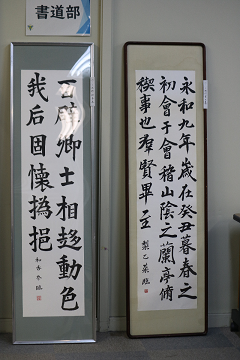 書道部
永和九年歳在癸丑暮春之
初會于會稽山陰之蘭亭脩
稧事也羣賢畢至
百辟卿士相趍動色
我后固懷撝挹